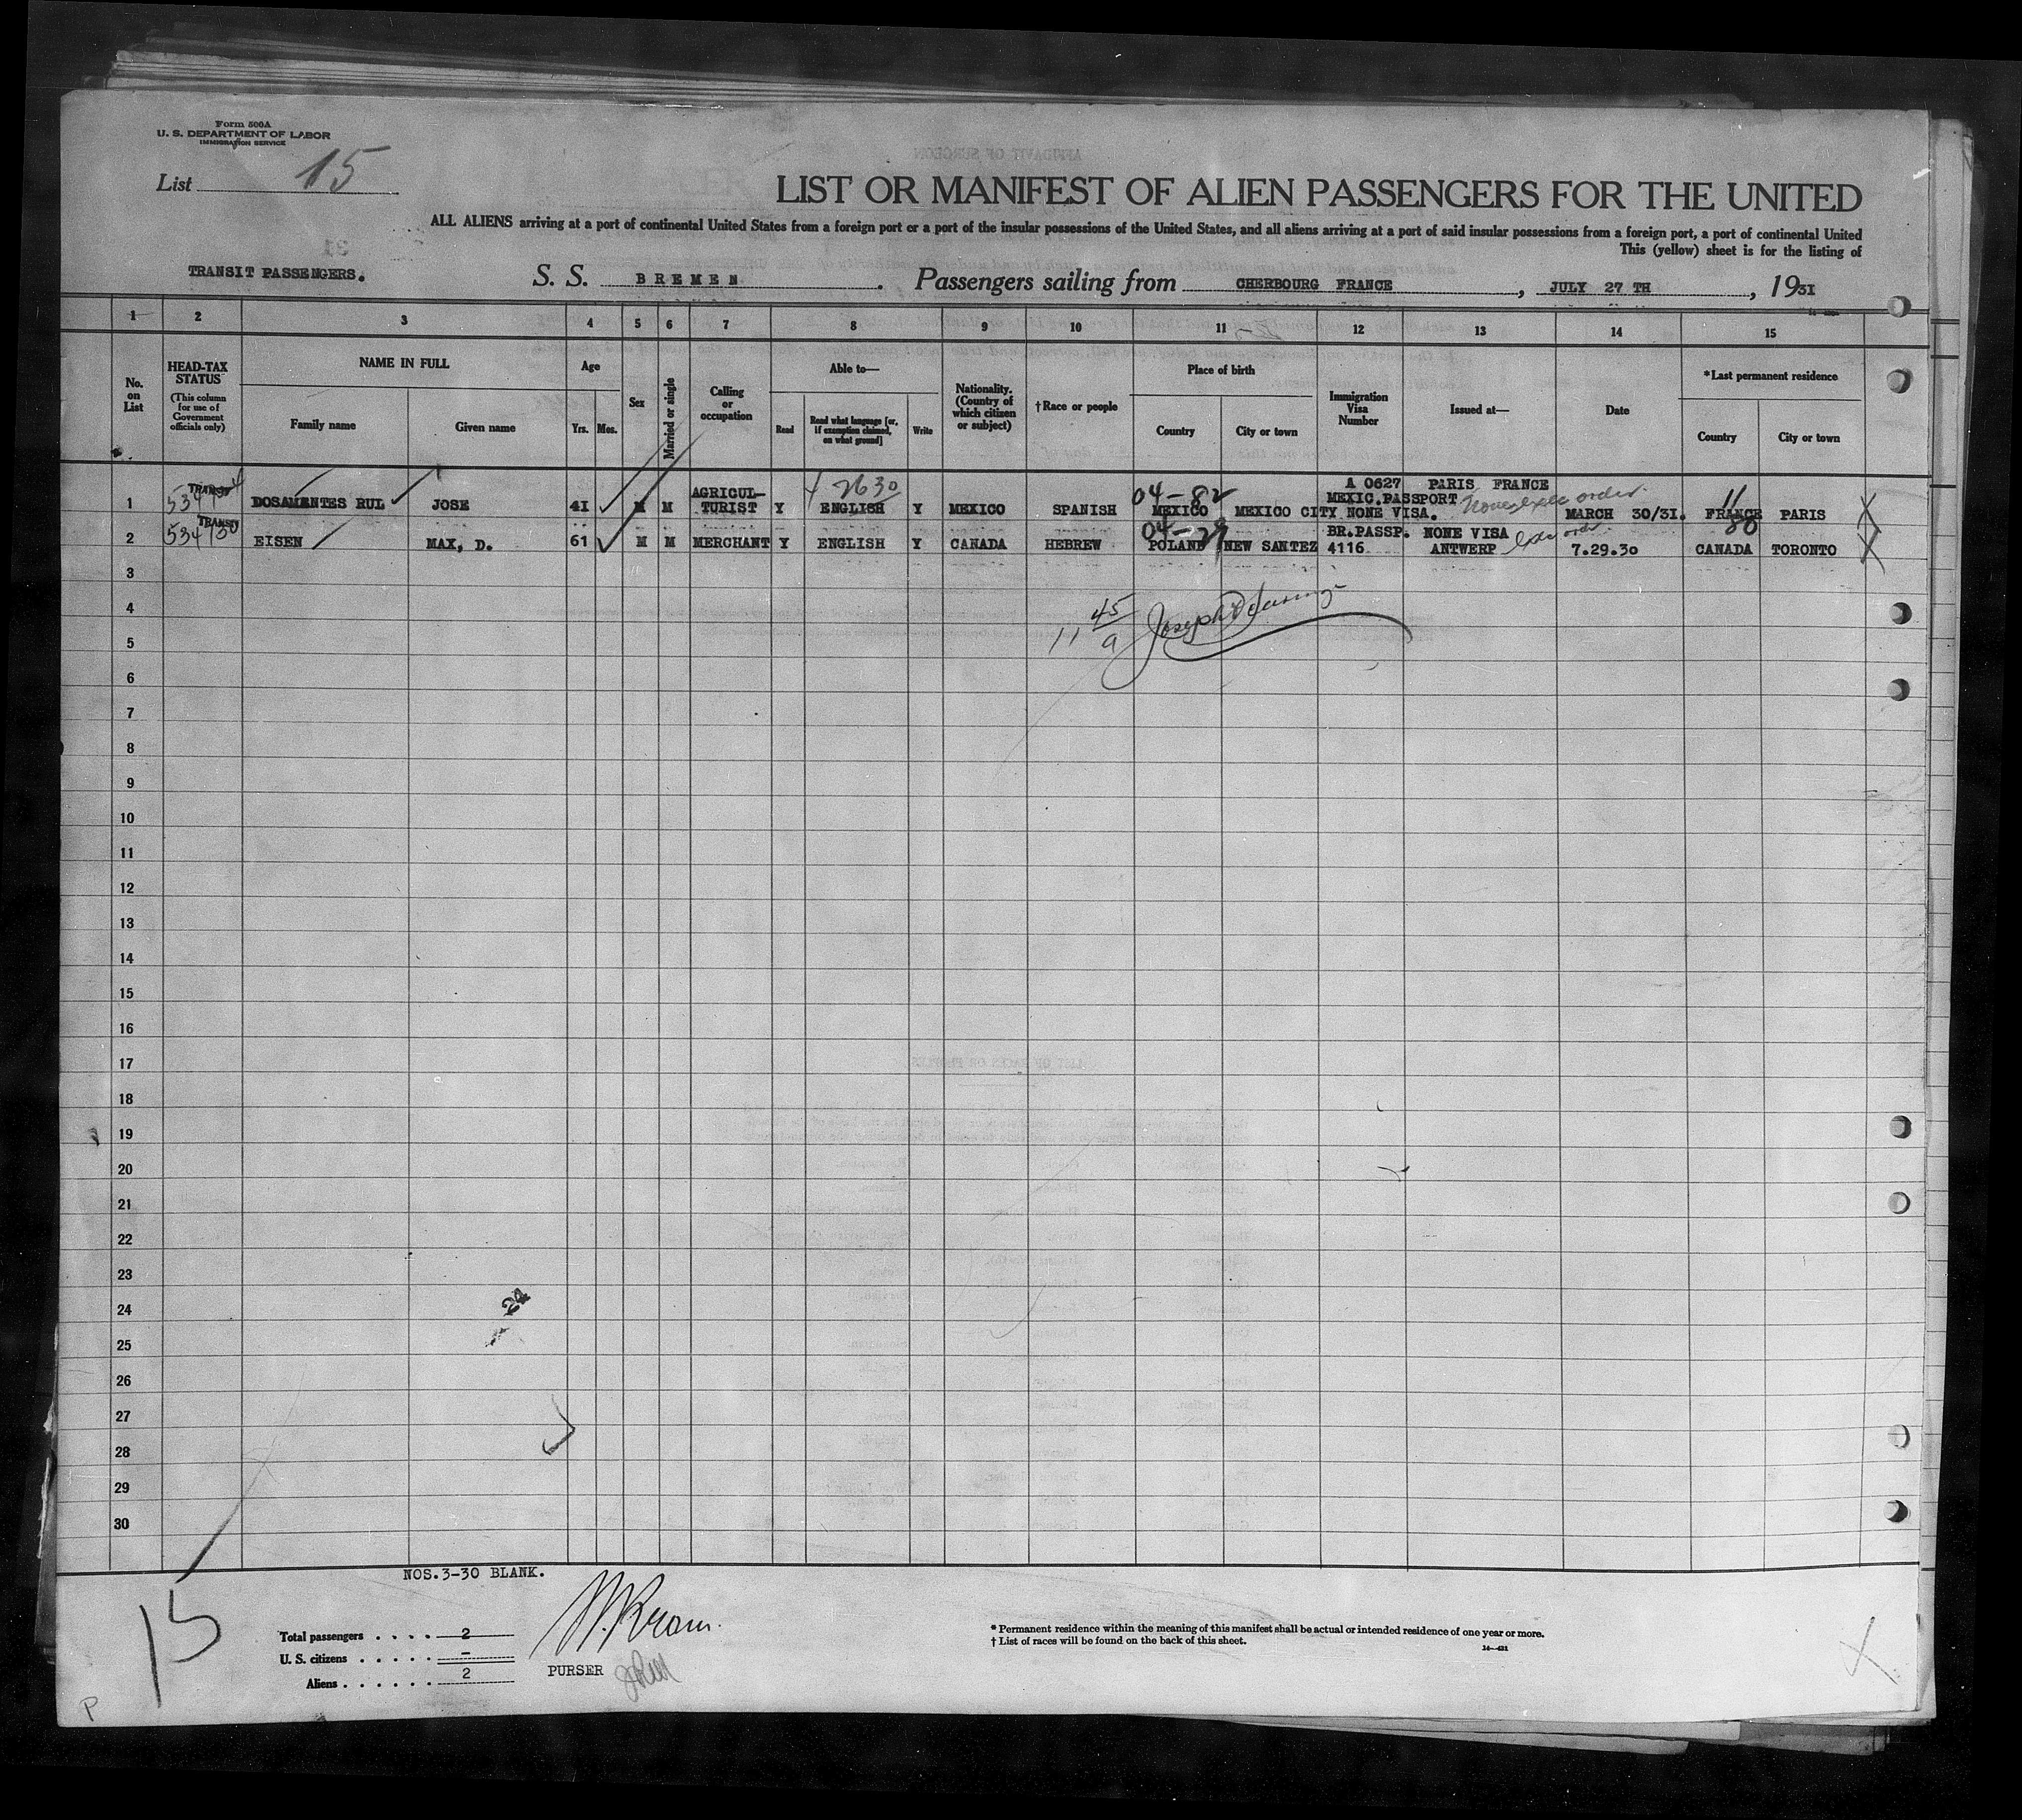 Form 500A
U. S. DEPARTMENT OF LABOR
IMMIGRATION SERVICE
List 15
LIST OR MANIFEST OF ALIEN PASSENGERS FOR THE UNITED
ALL ALIENS arriving at a port of continental United States from a foreign port or a port of the insular possessions of the United States, and all aliens arriving at a port of said insular possessions from a foreign port, a port of continental United
This (yellow) sheet is for the listing of
TRANSIT PASSENGERS. S. S. BREMEN. Passengers sailing from CHERBOURG FRANCE, JULY 27 TH, 1931
1 2 3 4 5 6 7 8 9 10 11 12 13 14 15
No. on List
HEAD-TAX STATUS (This column for use of Government officials only)
NAME IN FULL
Family name Given name
Age
Yrs. Mos.
Sex
Married or single
Calling or occupation
Able to—
Read Read what language [or, if exemption claimed, on what ground] Write
Nationality. (Country of which citizen or subject)
†Race or people
Place of birth
Country City or town
Immigration Visa Number
Issued at—
Date
*Last permanent residence
Country City or town
TRANSIT 2630 04-82 A 0627 PARIS FRANCE 11
AGRICUL- MEXIC.PASSPORT
1 DOSAMENTES RUL JOSE 41 M M TURIST Y ENGLISH Y MEXICO SPANISH MEXICO MEXICO CITY NONE VISA. MARCH 30/31. FRANCE PARIS
534/30 TRANSIT 04-29 BR.PASSP. NONE VISA 80
2 EISEN MAX, D. 61 M M MERCHANT Y ENGLISH Y CANADA HEBREW POLAND NEW SANTEZ 4116 ANTWERP 7.29.30 CANADA TORONTO
3
4
45
11 a Joseph
5
6
7
8
9
10
11
12
13
14
15
16
17
18
19
20
21
22
23
24
24
25
26
27
28
29
30
NOS.3-30 BLANK.
15
Total passengers . . . . 2
U. S. citizens . . . . . -
Aliens . . . . . . 2
PURSER
* Permanent residence within the meaning of this manifest shall be actual or intended residence of one year or more.
† List of races will be found on the back of this sheet.
P